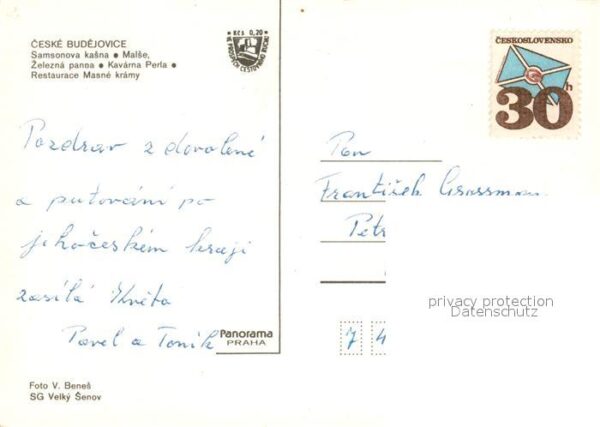 ČESKÉ BUDĚJOVICE
Samsonova kašna ● Malše,
Železná panna ● Kavárna Perla ●
Restaurace Masné krámy
Kčs 0,20
VE PROSPĚCH CESTOVNÍHO RUCHU
ČESKOSLOVENSKO
30h
Pozdrav z dovolené
a putování po
jihočeském kraji
zasílá Květa
Pavel a Toník
Pan
František Grossman
Petr
7 4
privacy protection
Datenschutz
Panorama
PRAHA
Foto V. Beneš
SG Velký Šenov